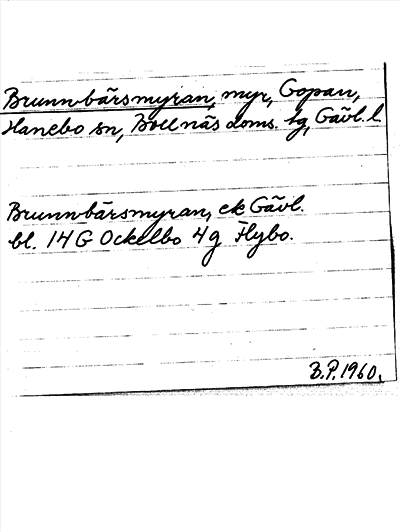 Brunnbärsmyran, myr, Gopan,
Hanebo sn, Bollnäs doms. hg, Gävl. l
Brunnbärsmyran, ek Gävl.
bl. 14 G Ockelbo 4 g Flybo.
B.P. 1960.